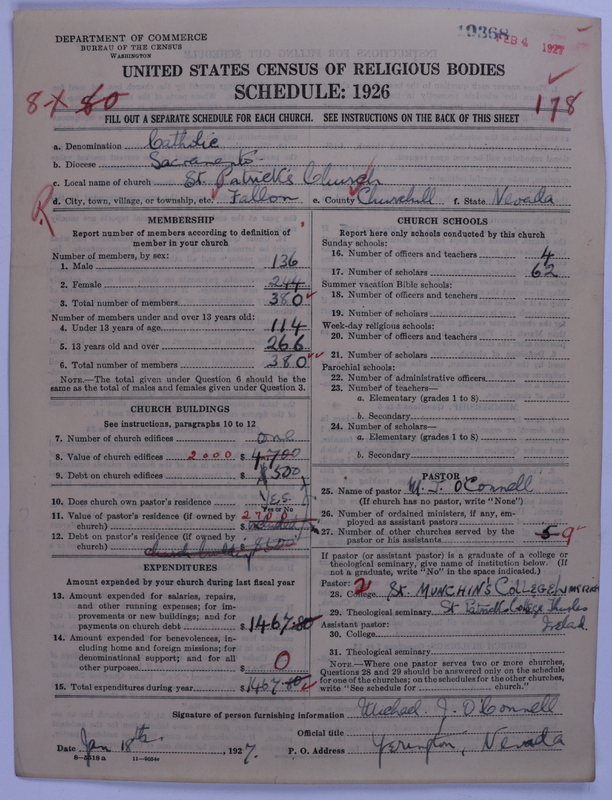 19368
FEB 4 1927
DEPARTMENT OF COMMERCE
BUREAU OF THE CENSUS
WASHINGTON
UNITED STATES CENSUS OF RELIGIOUS BODIES
SCHEDULE: 1926
8x 80
178
FILL OUT A SEPARATE SCHEDULE FOR EACH CHURCH. SEE INSTRUCTIONS ON THE BACK OF THIS SHEET
a. Denomination Catholic
b. Diocese Sacramento
c. Local name of church St. Patrick's Church
R
d. City, town, village, or township, etc. Fallon e. County Churchill f. State Nevada
MEMBERSHIP
Report number of members according to definition of
member in your church
Number of members, by sex:
1. Male 136
2. Female 244
3. Total number of members 380
Number of members under and over 13 years old:
4. Under 13 years of age 114
5. 13 years old and over 266
6. Total number of members 380
NOTE.—The total given under Question 6 should be
same as the total of males and females given under Question 3.
CHURCH BUILDINGS
See instructions, paragraphs 10 to 12
7. Number of church edifices one
8. Value of church edifices 2000 $ 4,700
9. Debt on church edifices $ 1500
10. Does church own pastor's residence Yes
Yes or No
11. Value of pastor's residence (if owned by
church) 2700 $
12. Debt on pastor's residence (if owned by
church) church building $1500
EXPENDITURES
Amount expended by your church during last fiscal year
13. Amount expended for salaries, repairs,
and other running expenses; for im-
provements or new buildings; and for
payments on church debt $ 1467.80
14. Amount expended for benevolences, in-
cluding home and foreign missions; for
denominational support; and for all
other purposes $ 0
15. Total expenditures during year $ 1467.80
CHURCH SCHOOLS
Report here only schools conducted by this church
Sunday schools:
16. Number of officers and teachers 4
17. Number of scholars 62
Summer vacation Bible schools:
18. Number of officers and teachers
19. Number of scholars
Week-day religious schools:
20. Number of officers and teachers
21. Number of scholars
Parochial schools:
22. Number of administrative officers
23. Number of teachers—
a. Elementary (grades 1 to 8)
b. Secondary
24. Number of scholars—
a. Elementary (grades 1 to 8)
b. Secondary
PASTOR
25. Name of pastor M. J. O'Connell
(If church has no pastor, write "None")
26. Number of ordained ministers, if any, em-
ployed as assistant pastors
27. Number of other churches served by the
pastor or his assistants 5 9
If pastor (or assistant pastor) is a graduate of a college or
theological seminary, give name of institution below. (If
not a graduate, write "No" in the space indicated.)
Pastor: 2
28. College St. MUNCHIN'S COLLEGE LIMERICK
29. Theological seminary St Patrick's College Thurles
Ireland.
Assistant pastor:
30. College
31. Theological seminary
NOTE.—Where one pastor serves two or more churches,
Questions 28 and 29 should be answered only on the schedule
for one of the churches; on the schedules for the other churches,
write "See schedule for church."
Signature of person furnishing information Michael J. O'Connell
Official title
Date Jan 18th, 1927. P. O. Address Yerington, Nevada